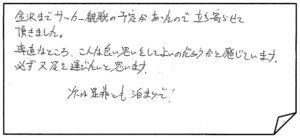 金沢までサッカー観戦の予定があったので立ち寄らせて
頂きました。
率直なところ、こんな良い思いをしてよいのだろうかと感じています。
必ず又足を運びたいと思います。
次は是非とも泊まりで!